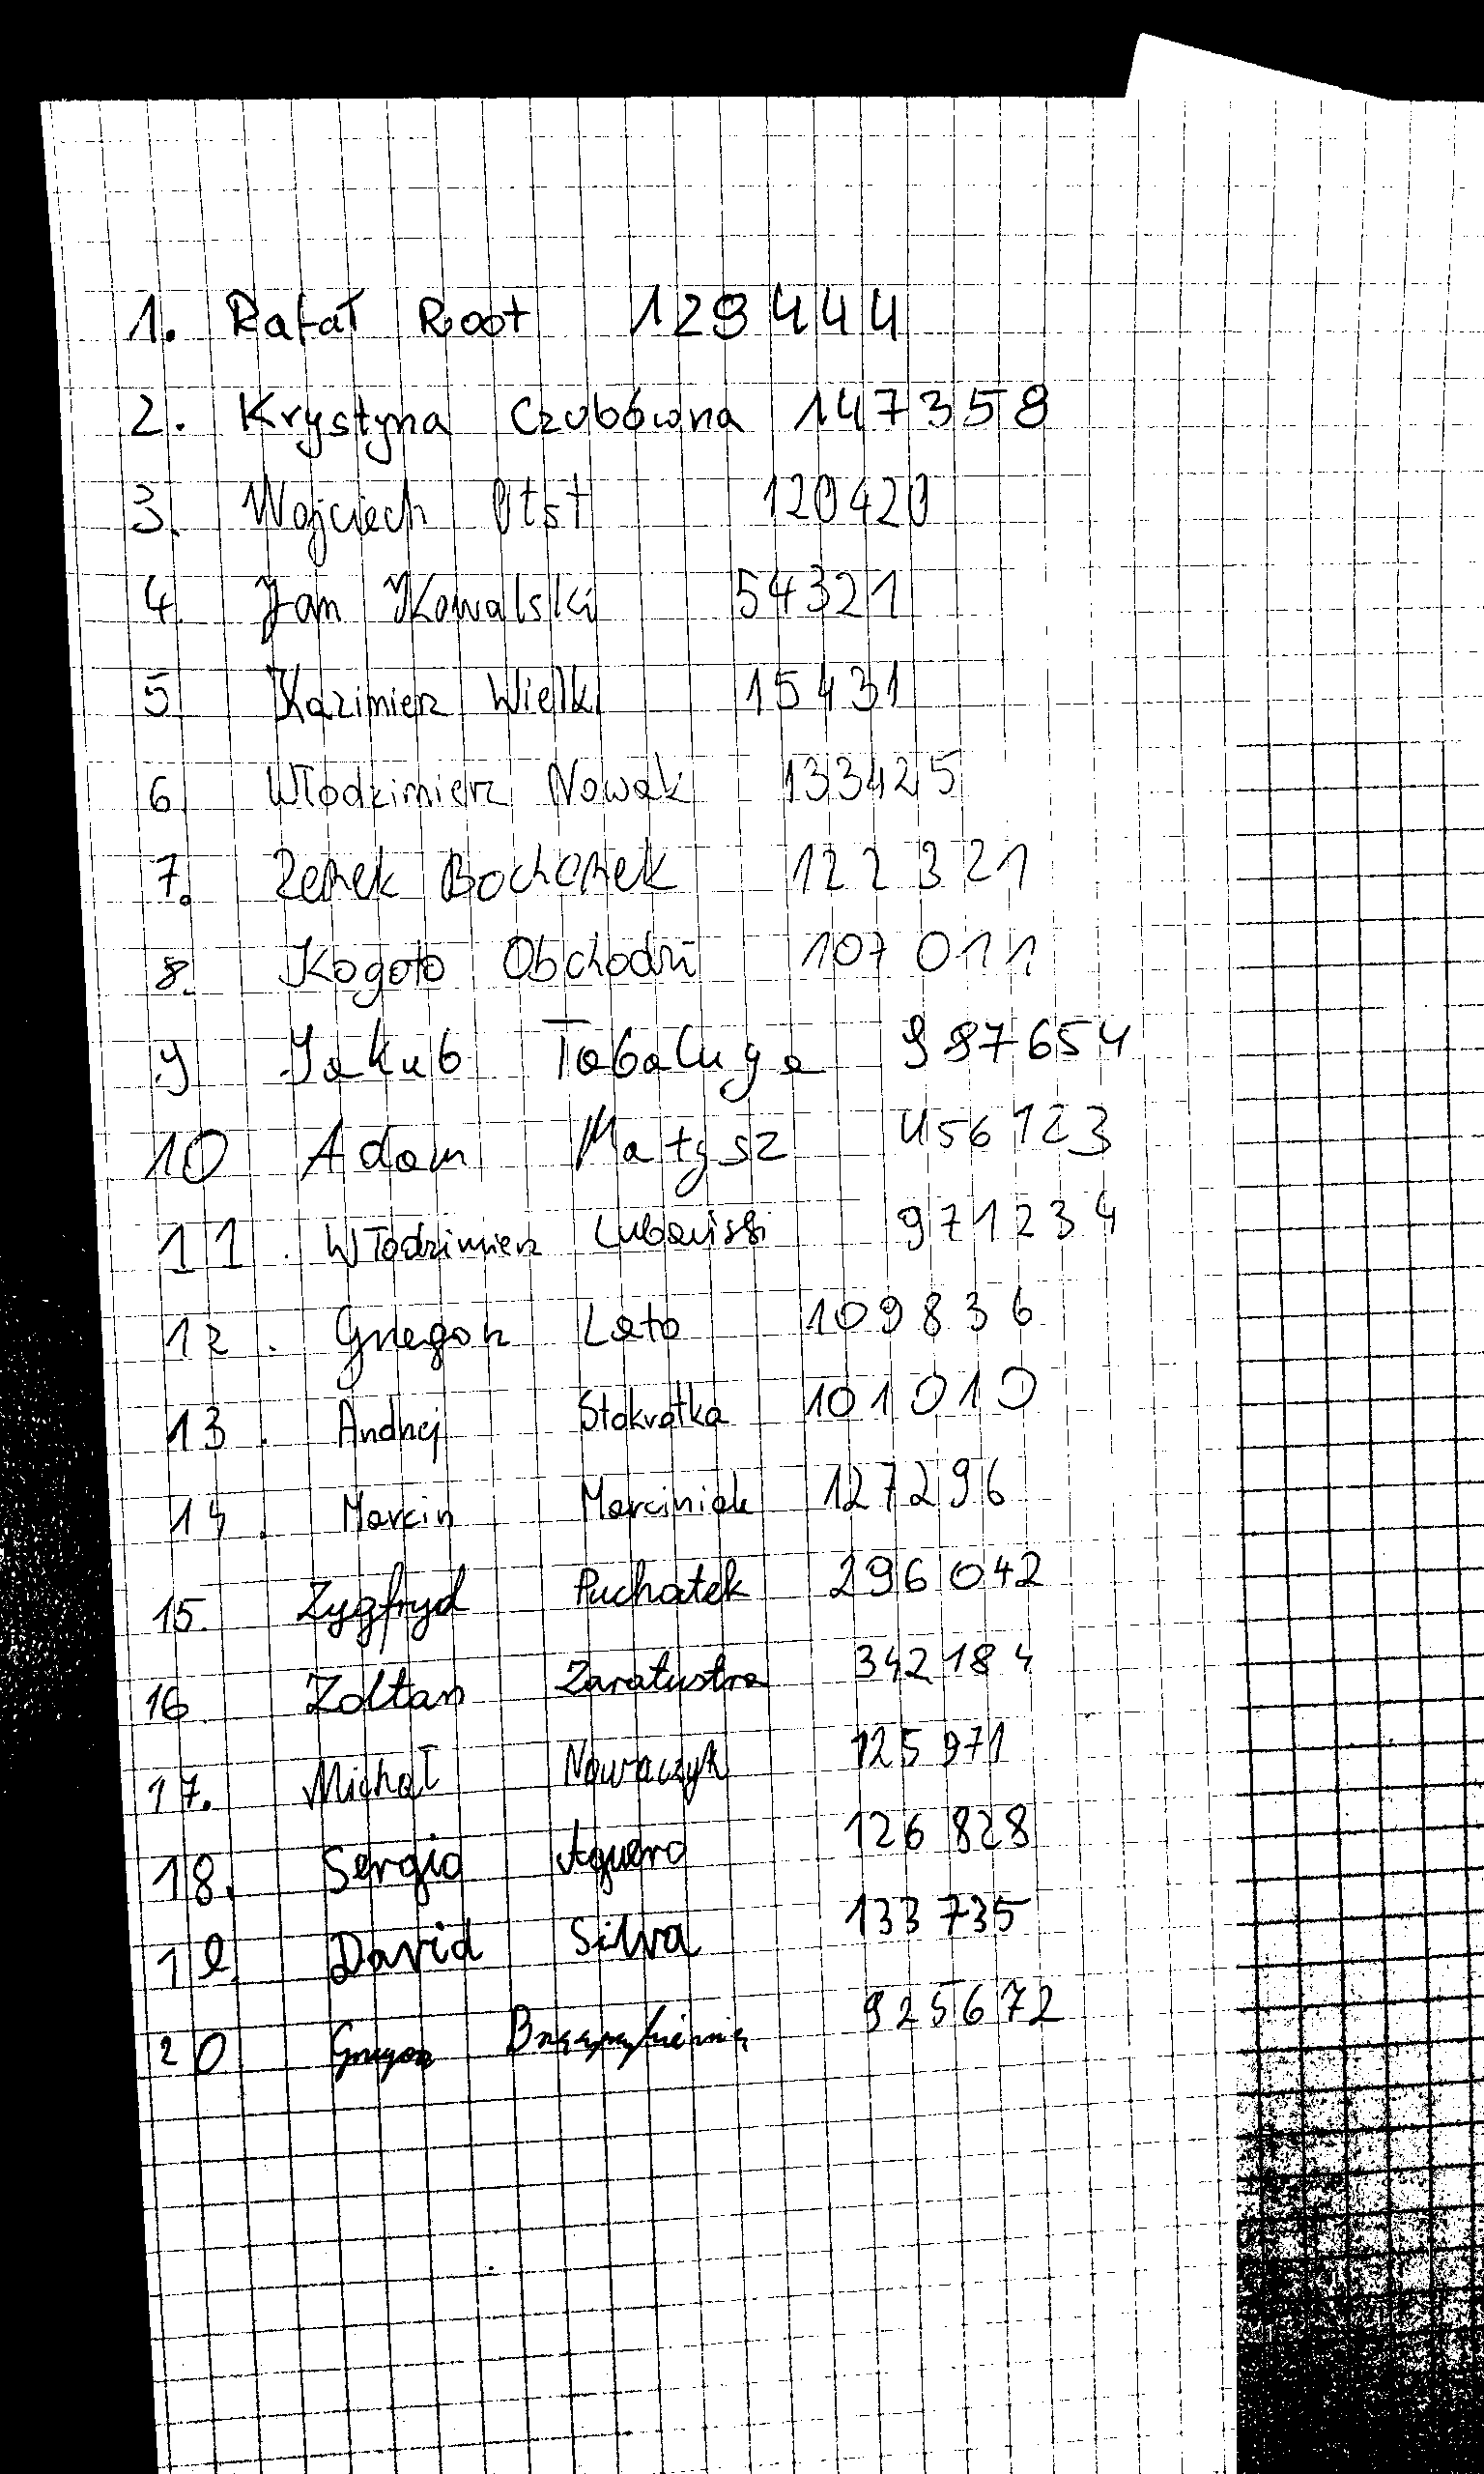 1. Rafał Root 129444
2. Krystyna Czubówna 147359
3. Wojciech Otst 120420
4. Jan Kowalski 54321
5. Kazimierz Wielki 15431
6. Włodzimierz Nowak 133425
7. Zenek Bochenek 122321
8. Kogoto Obchodzi 107011
9 Jakub Tabaluga 987654
10 Adam Małysz 456123
11. Włodzimierz 971234
12. Grzegorz Lato 109836
13. Andrzej Stokrotka 101010
14. Marcin Marciniak 127296
15. Zygfryd Puchatek 296042
16 Zoltan Zaratustra 342184
17. Michał Nowaczyk 125971
18. Sergio Aguero 126828
19. David Silva 133735
20 Grzegorz 925672